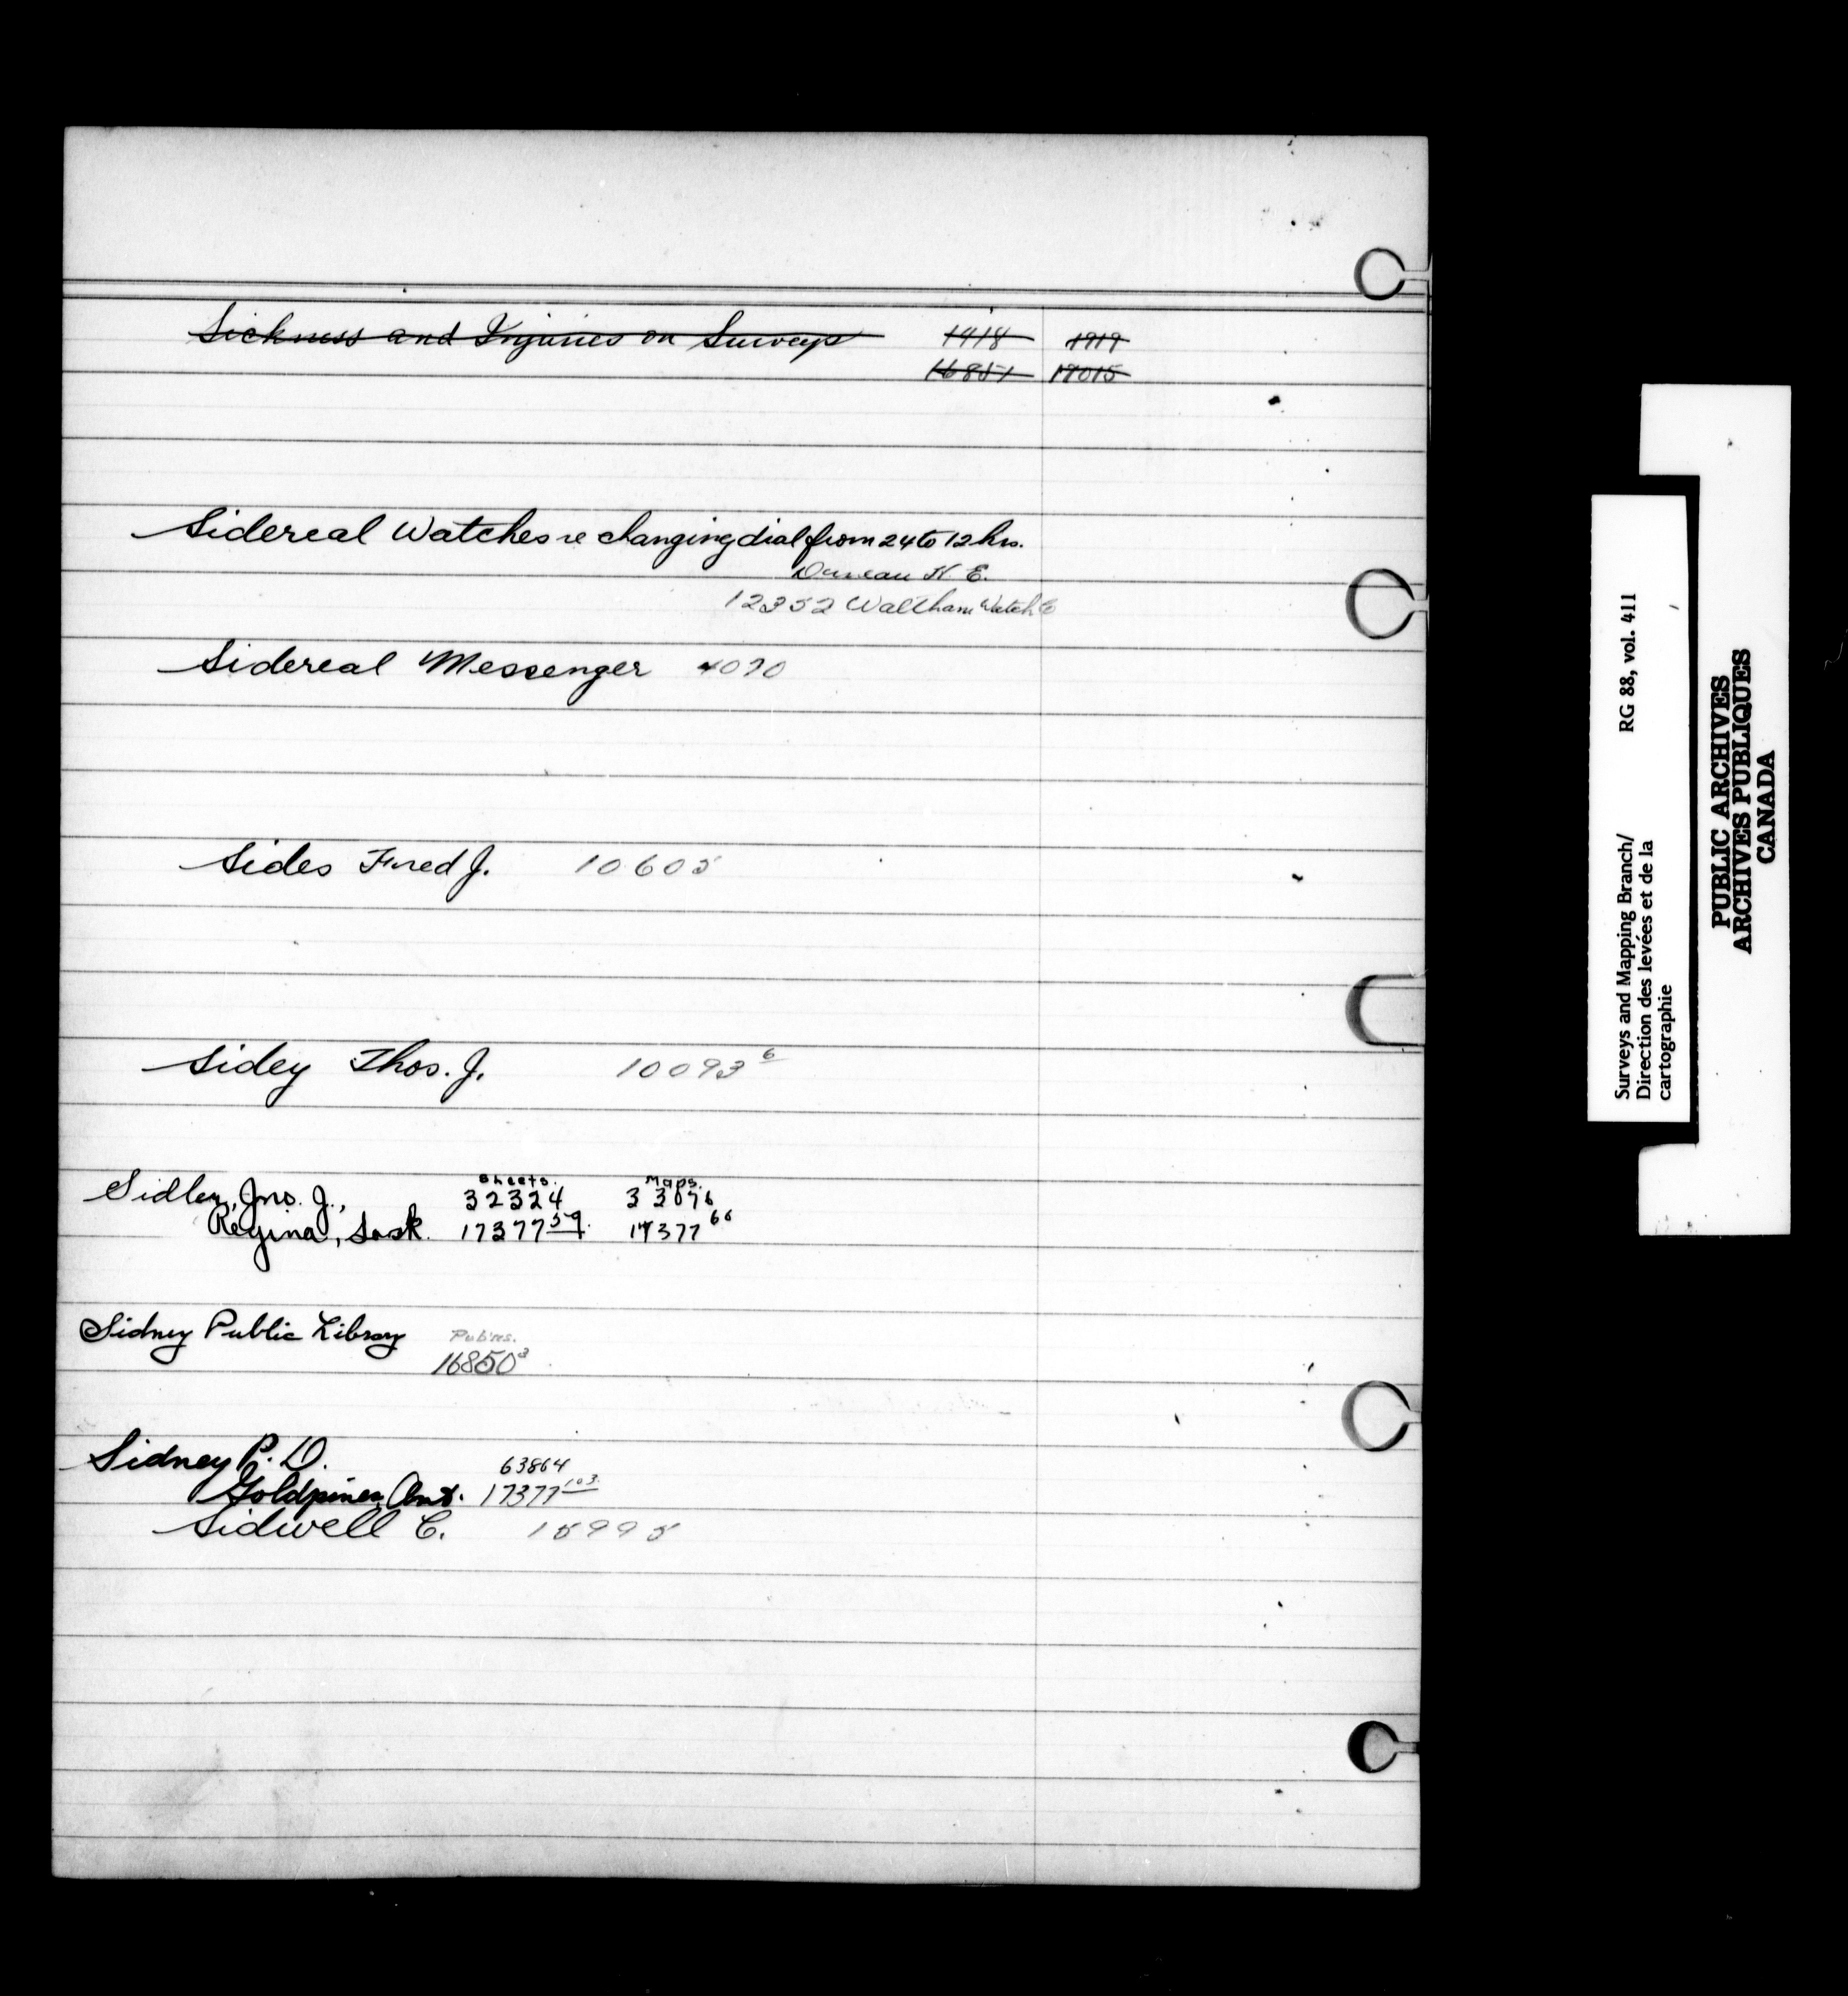 Sickness and Injuries on Surveys 1918 1919
16851 18015
Sidereal Watches re changing dial from 24 to 12 hrs.
N. E.
12352 Waltham Watch Co
Sidereal Messenger 4070
Sides Fred J. 10605
Sidey Thos. J. 10093 6
Sheets. Maps.
Sidley, Jno. J., 32324 33076
Regina, Sask. 17377 59. 17377 66
Sidney Public Library Pub'ns.
16850 3
Sidney P. D. 63864
Goldpines, Ont. 17377 103.
Sidwell C. 15995
Surveys and Mapping Branch/ RG 88, vol. 411
Direction des levées et de la
cartographie
PUBLIC ARCHIVES
ARCHIVES PUBLIQUES
CANADA